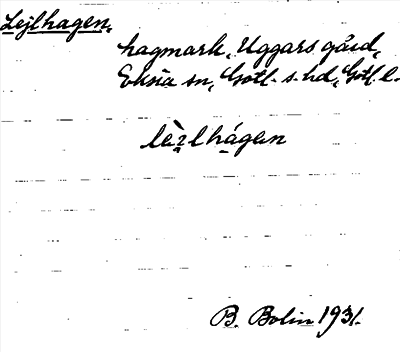 Lejlhagen,
hagmark, Uggars gård,
Eksta sn, Gotl. s. hd, Gotl. l.
lèɪlhágen
B. Bolin 1931.